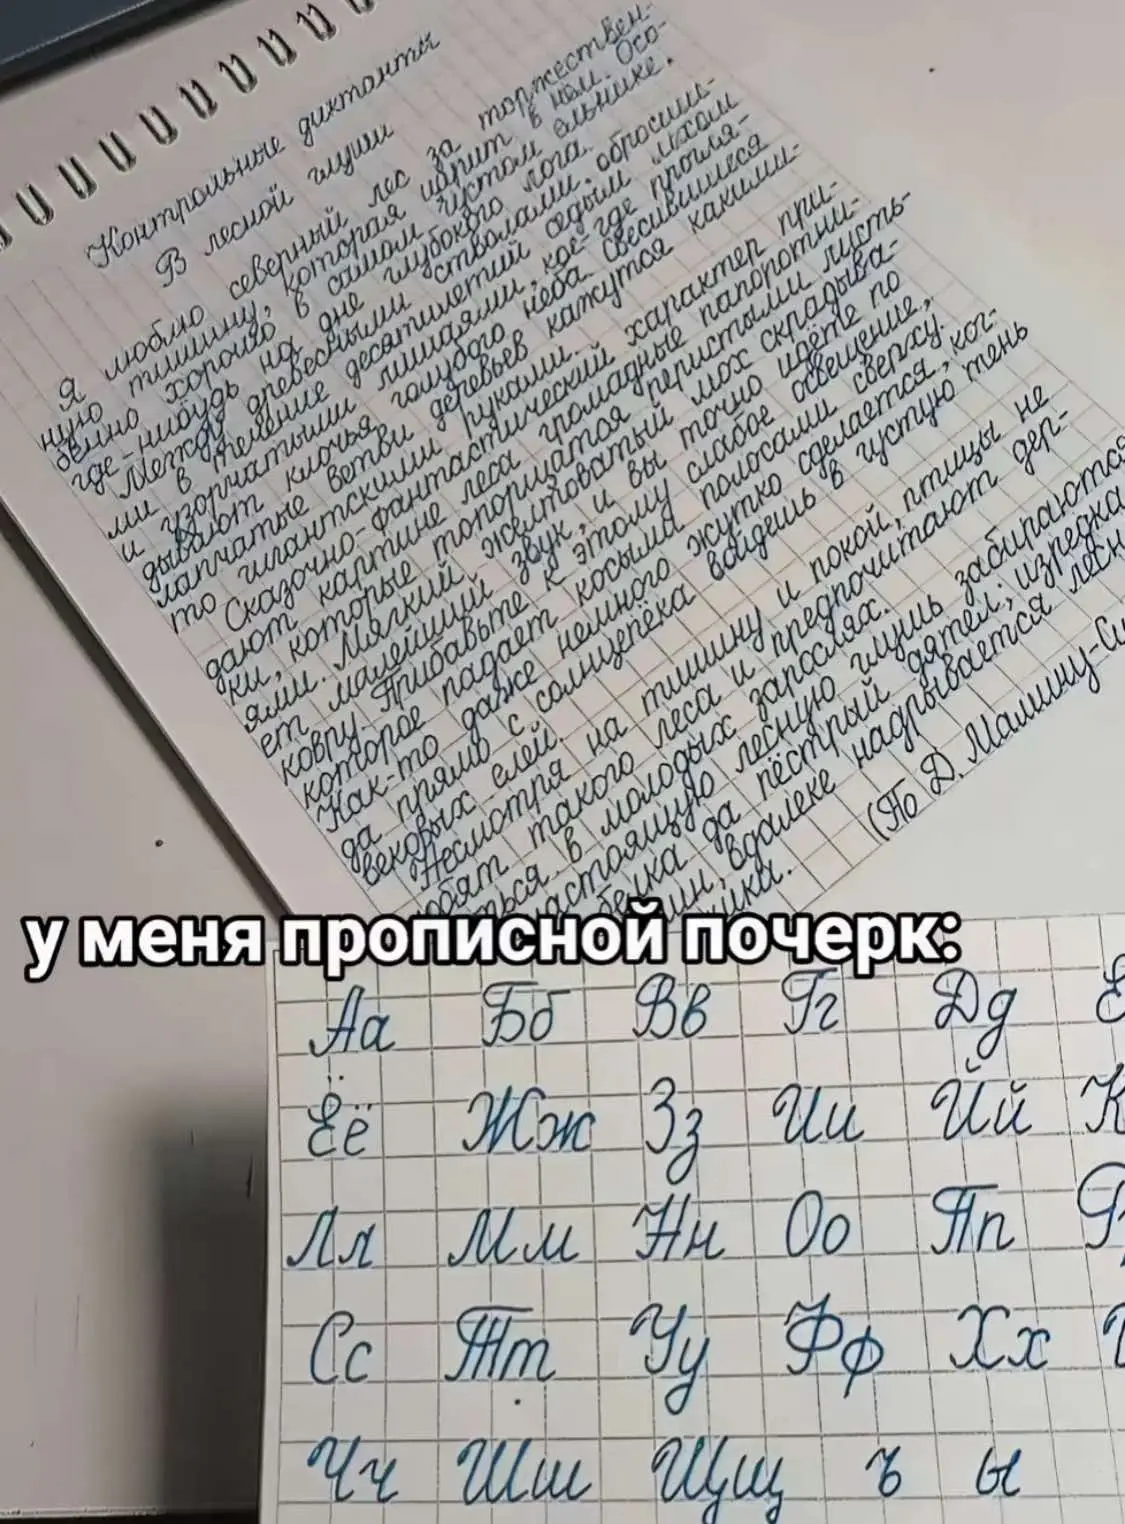 Контрольные диктанты
В лесной глуши
Я люблю северный лес за торжествен-
ную тишину, которая царит в нём. Осо-
бенно хорошо в самом густом ельнике,
где-нибудь на дне глубокого лога.
Между древесными стволами, обросши-
ми в течение десятилетий седым мхом
и узорчатыми лишаями, кое-где прогля-
дывают клочья голубого неба. Свесившиеся
лапчатые ветви деревьев кажутся какими-
то гигантскими руками.
Сказочно-фантастический характер при-
дают картине леса громадные папоротни-
ки, которые топорщатся перистыми листь-
ями. Мягкий желтоватый мох скрадыва-
ет малейший звук, и вы точно идёте по
ковру. Прибавьте к этому слабое освещение,
которое падает косыми полосами сверху.
Как-то даже немного жутко сделается, ког-
да прямо с солнцепёка войдешь в густую тень
вековых елей.
Несмотря на тишину и покой, птицы не
любят такого леса и предпочитают дер-
ться в молодых зарослях.
астоящую лесную глушь забираются
белка да пёстрый дятел; изредка
вдалеке надрывается лесн
(По Д. Мамину-Си
у меня прописной почерк:
Аа Бб Вв Гг Дд Е
Ёё Жж Зз Ии Йй К
Лл Мм Нн Оо Пп Р
Сс Тт Уу Фф Хх Ц
Чч Шш Щщ ъ ы